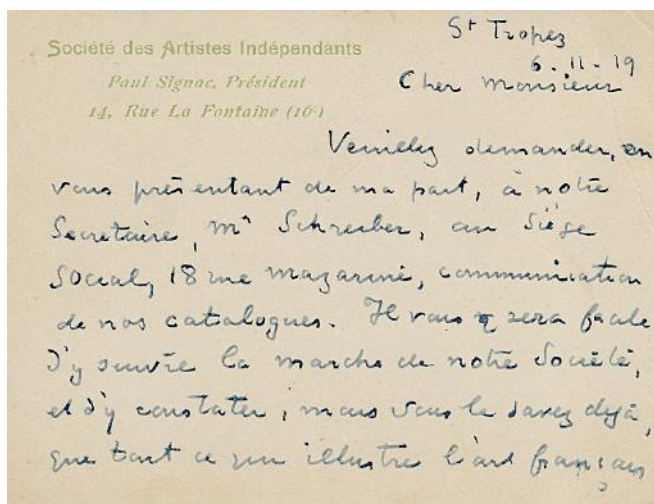 Société des Artistes Indépendants
Paul Signac, Président
14, Rue La Fontaine (16e)
St Tropez
6-11-19
Cher Monsieur
Veuillez demander, en
vous présentant de ma part, à notre
Secrétaire, Mr Schreiber, au Siège
Social, 18 rue Mazarine, communication
de nos catalogues. Il vous sera facile
d'y suivre la marche de notre Société,
et d'y constater, mais vous le savez dejà,
que tout ce qui illustre l'art français